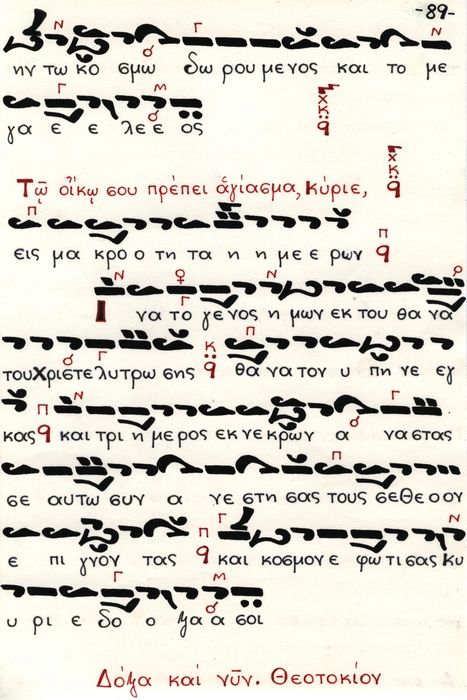 -89-
ην τω κο σμω δω ρου με νος και το με
γα ε ε λε ε ος
Τῷ οἴκῳ σου πρέπει ἁγίασμα, Κύριε,
εις μα κρο ο τη τα η η με ε ρων
Ι να το γε νος η μων εκ του θα να
του Χρι στε λυ τρω σης θα να τον υ πη νε εγ
κας και τρι η με ρος εκ νε κρων α να στας
σε αυτω συν α νε στη σας τους σε θε ο ον
ε πι γνον τας και κοσμον ε φω τι σας κυ
υ ρι ε δο ο ξα α σοι
Δόξα καί νῦν. Θεοτοκίον